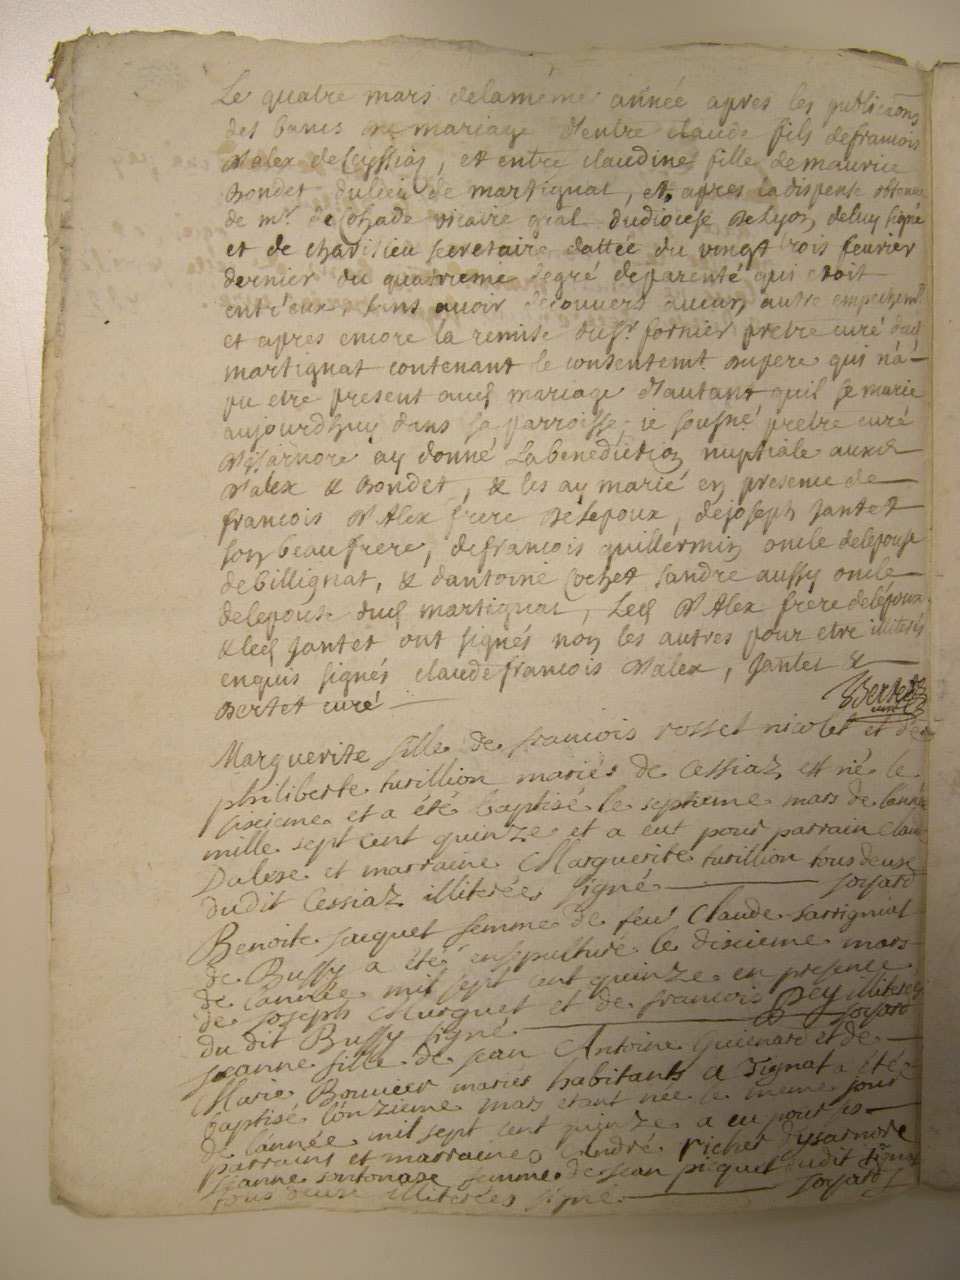 Le quatre mars delamême année apres les publicãons
des bancs de mariage d'entre claude fils defrancois
d'alex de Ceyssiaz, et entre claudine fille de maurice
Bondet dulieu de martignat, et apres la dispense obtenue
de mr. de Cohade vicaire gñal dudiocese de Lyon, deluy signé
et de charlieu secretaire dattée du vingt trois fevrier
dernier du quatrieme degré deparenté qui etoit
entr'eux, sans avoir decouvert aucun autre empechemt
et apres encore la remise dusr. fornier pretre curé dud
martignat contenant le consentemt dupere qui n'á-
pu etre present aud mariage d'autant quil se marie
aujourdhuy dans sa parroisse, ie sousné pretre curé
d'Isarnore ay donné La benediction nuptiale auxd
d'alex & Bondet, & les ay marié en presence de
francois d'Alex frere de Lepoux, dejoseph Jantet
son beaufrere, defrancois guillermin oncle delepouse
debillignat, & d'antoine Cochet Sandre aussy oncle
delepouse dud martignat, Led d'Alex frere delépoux
& led Jantet ont signés non les autres pour etre illiterés
enquis signés claudefrancois d'alex, Jantet &
Bertet curé
Bertet
curé
Marguerite fille de francois rosset nicolet et de
philiberte turillion mariés de Cessiaz est né le
sixieme et a été baptisé le septieme mars de lannée
mille sept cent quinze et a eut pour parrain Claude
Dalex et marraine Marguerite turillion tous deux
dudit Cessiaz illiterées signé joyard
Benoite jacquet femme de feu Claude Sarrigniat
de Bussy a été enspulturé le dixieme mars
de l'année mil sept cent quinze en presence
de joseph Murquet et de francois Pey illiterés
du dit Bussy signé joyard
jeanne fille de jean Antoine Guienard et de
Marie Bouvier mariés habitants a Tignat a été
baptisé l'onzieme mars etant née le meme jour
de l'année mil sept cent quinze a eu pour ses
parrains et marraines André richer d'ysarnore
jeanne femme de jean piquet dudit
tous deux illiterées signé joyard